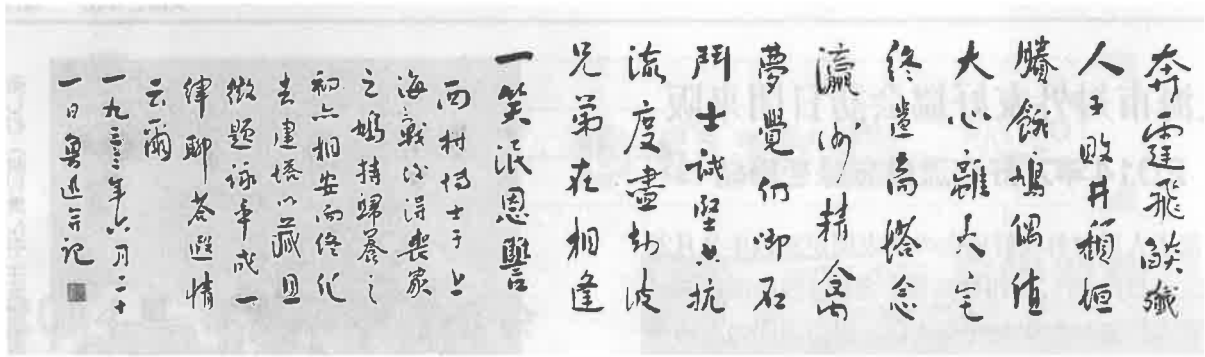 奔霆飛燄殲
人子敗井頹垣
賸餓鳩偶值
大心離火宅
終遺高塔念
瀛洲精禽
夢覺仍啣石
鬥士誠堅共抗
流度盡劫波
兄弟在相逢
一笑泯恩讐
西村博士于上
海戰後得喪家
之鳩持歸養之
初亦相安而終化
去建塔以藏且
徵題詠率成一
律聊答遐情
云爾
一九三三年六月二十
一日魯迅并記